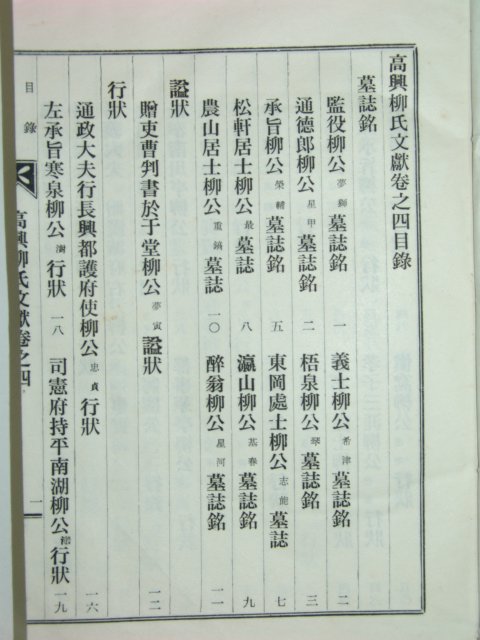 高興柳氏文獻卷之四目錄
墓誌銘
監役柳公夢獅墓誌銘 一 義士柳公希津墓誌銘 二
通德郎柳公星甲墓誌銘 二 梧泉柳公琴墓誌銘 三
承旨柳公榮輔墓誌銘 五 東岡處士柳公志龍墓誌 七
松軒居士柳公最墓誌 八 瀛山柳公基春墓誌銘 九
農山居士柳公重鎬墓誌 一〇 醉翁柳公星河墓誌銘 一一
謚狀
贈吏曹判書於于堂柳公夢寅謚狀 一二
行狀
通政大夫行長興都護府使柳公忠貞行狀 一六
左承旨寒泉柳公澍行狀 一八 司憲府持平南湖柳公行狀 一九
目錄
高興柳氏文獻卷之四
一